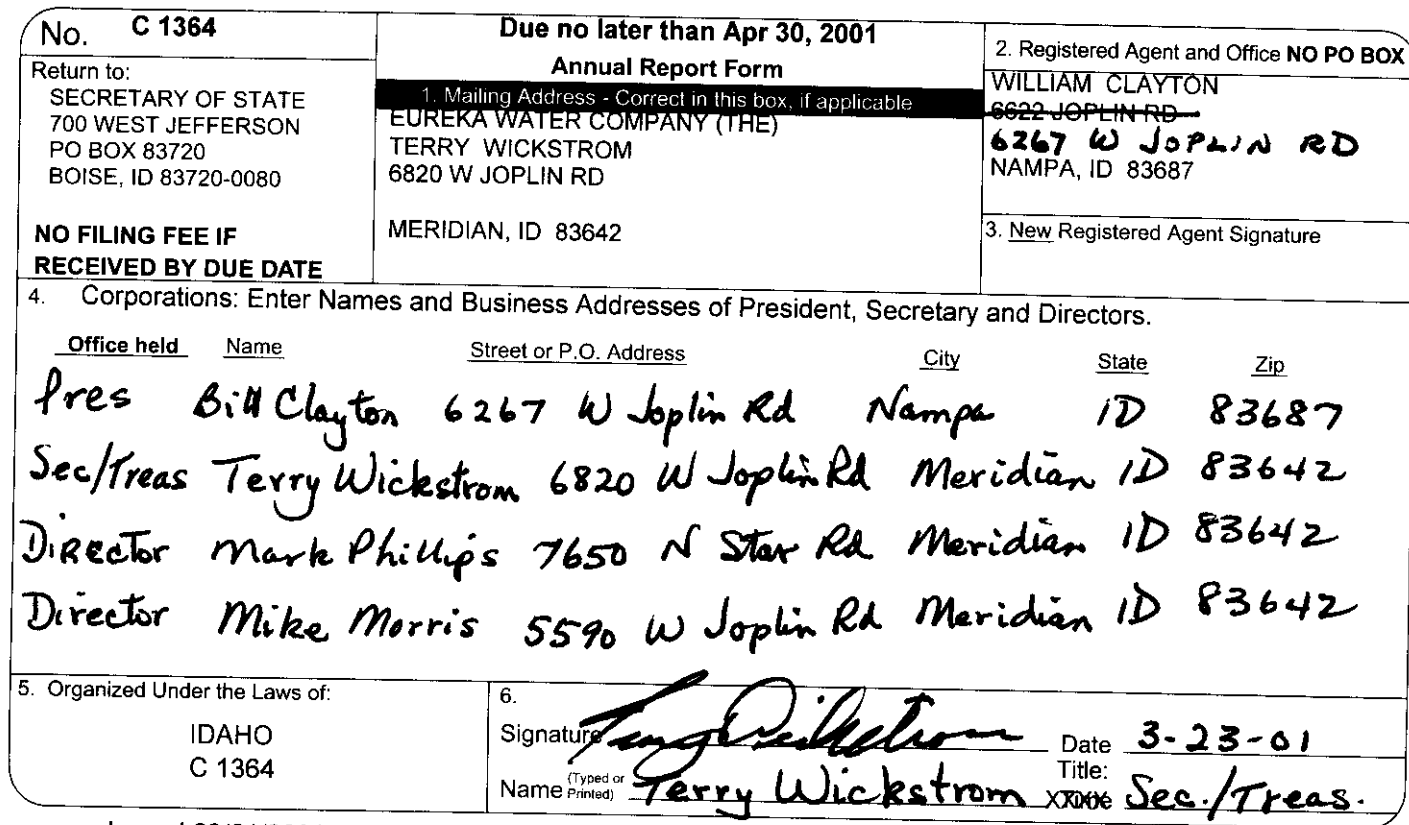 No. C 1364
Return to:
SECRETARY OF STATE
700 WEST JEFFERSON
PO BOX 83720
BOISE, ID 83720-0080
NO FILING FEE IF
RECEIVED BY DUE DATE
Due no later than Apr 30, 2001
Annual Report Form
1. Mailing Address - Correct in this box, if applicable
EUREKA WATER COMPANY (THE)
TERRY WICKSTROM
6820 W JOPLIN RD
MERIDIAN, ID 83642
2. Registered Agent and Office NO PO BOX
WILLIAM CLAYTON
6622 JOPLIN RD
6267 W JOPLIN RD
NAMPA, ID 83687
3. New Registered Agent Signature
4. Corporations: Enter Names and Business Addresses of President, Secretary and Directors.
Office held Name Street or P.O. Address City State Zip
Pres Bill Clayton 6267 W Joplin Rd Nampa ID 83687
Sec/Treas Terry Wickstrom 6820 W Joplin Rd Meridian ID 83642
Director Mark Phillips 7650 N Star Rd Meridian ID 83642
Director Mike Morris 5590 W Joplin Rd Meridian ID 83642
5. Organized Under the Laws of:
IDAHO
C 1364
6.
Signature Terry Wickstrom Date 3-23-01
Name (Typed or Printed) Terry Wickstrom Title: Sec./Treas.